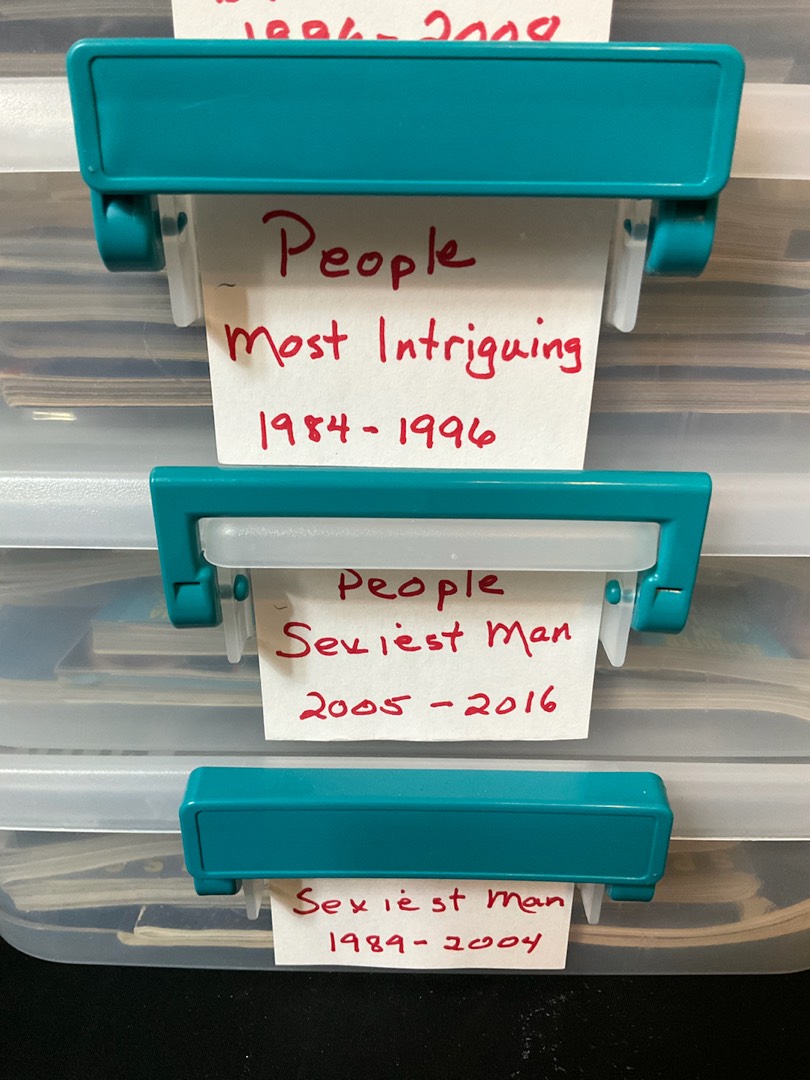 1996-2008
People
Most Intriguing
1984-1996
People
Sexiest Man
2005-2016
Sexiest Man
1989-2004